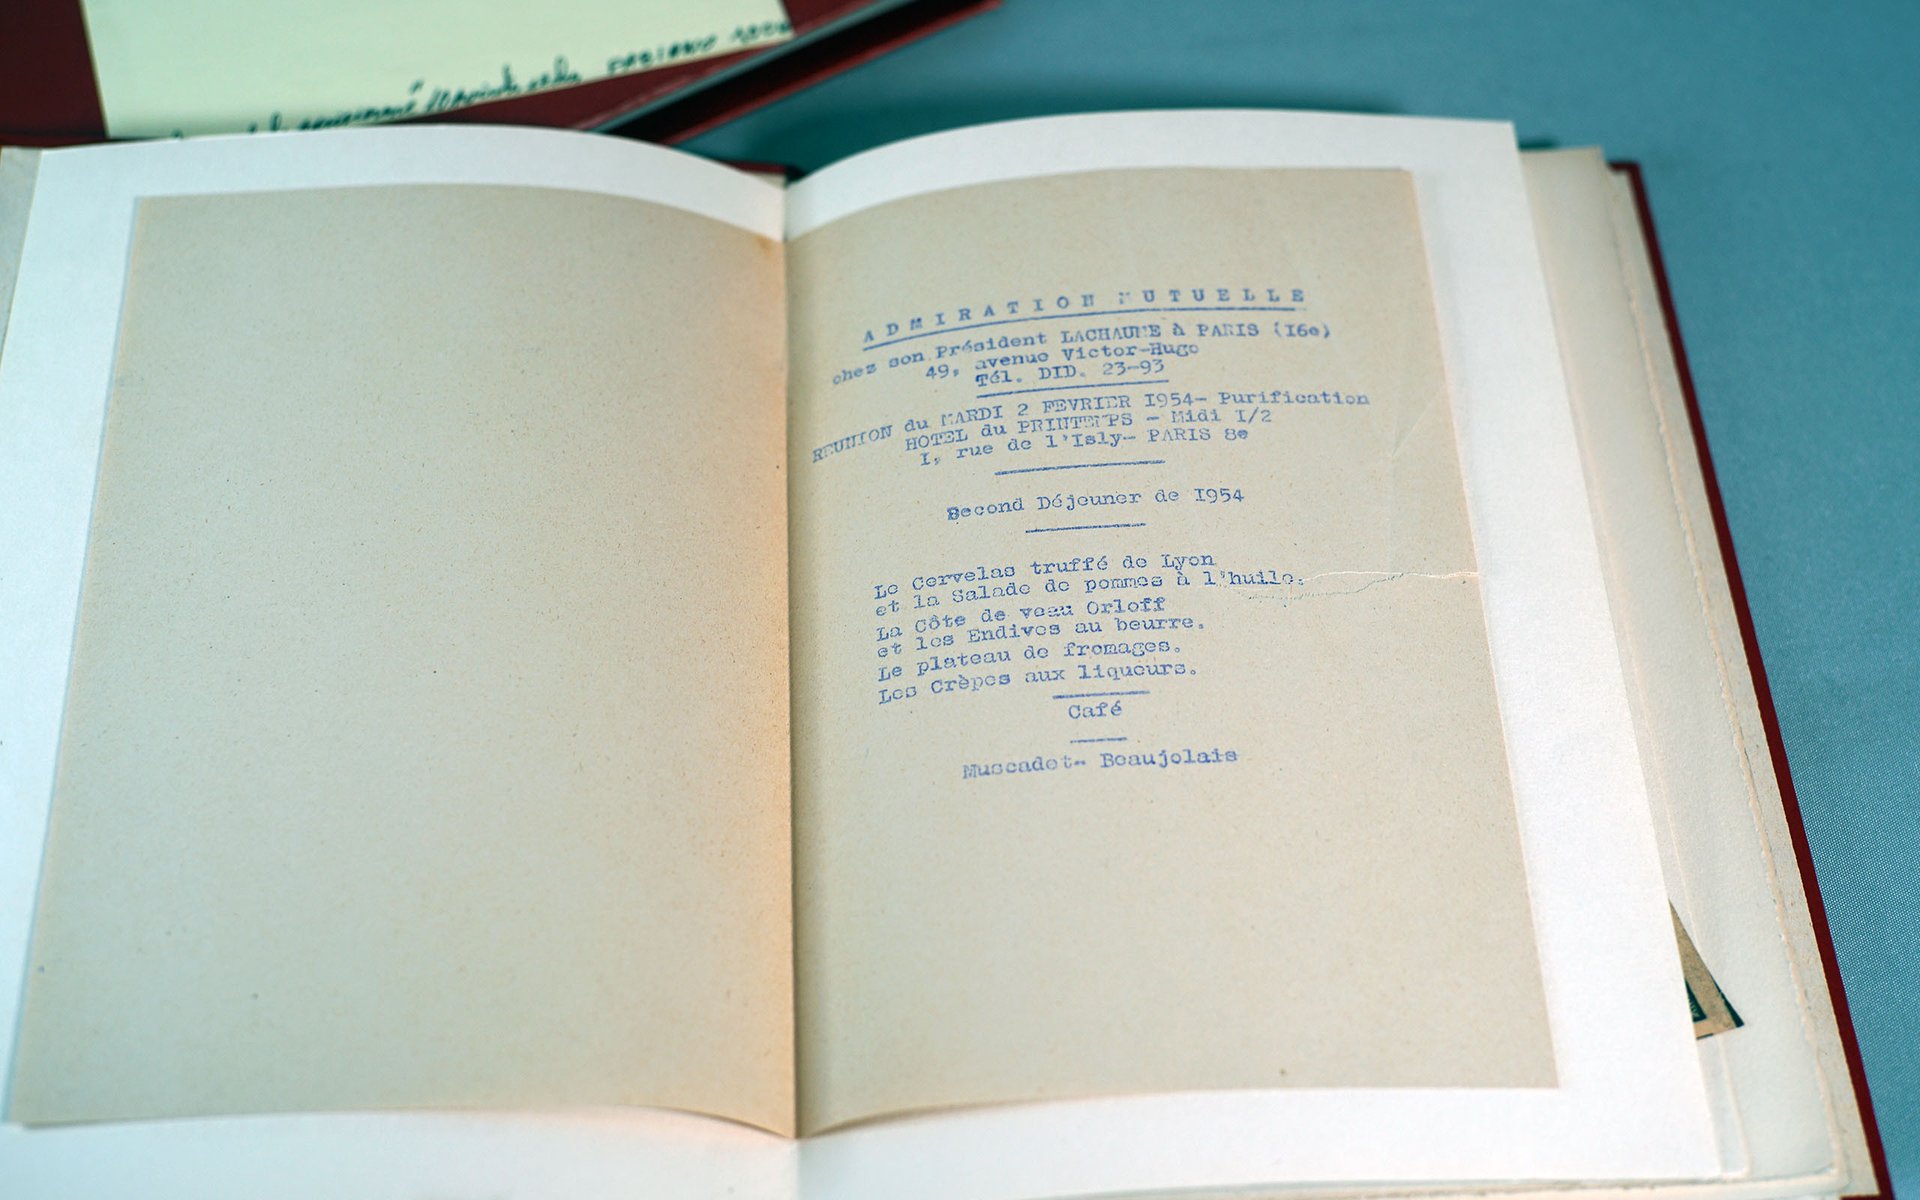 ADMIRATION MUTUELLE
chez son Président LACHAUME à PARIS (I6e)
49, avenue Victor-Hugo
Tél. DID. 23-93
REUNION du MARDI 2 FEVRIER I954- Purification
HOTEL du PRINTEMPS - Midi I/2
I, rue de l'Isly- PARIS 8e
Second Déjeuner de I954
Le Cervelas truffé de Lyon
et la Salade de pommes à l'huile.
La Côte de veau Orloff
et les Endives au beurre.
Le plateau de fromages.
Les Crèpes aux liqueurs.
Café
Muscadet- Beaujolais